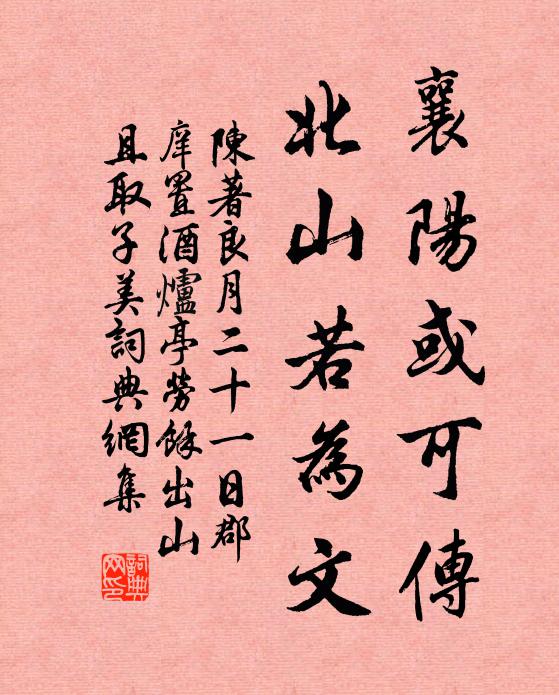 襄陽或可傳
北山若為文
陳著良月二十一日郡
庠置酒爐亭勞餘出山
且取子美詞典網集
詞典
网印